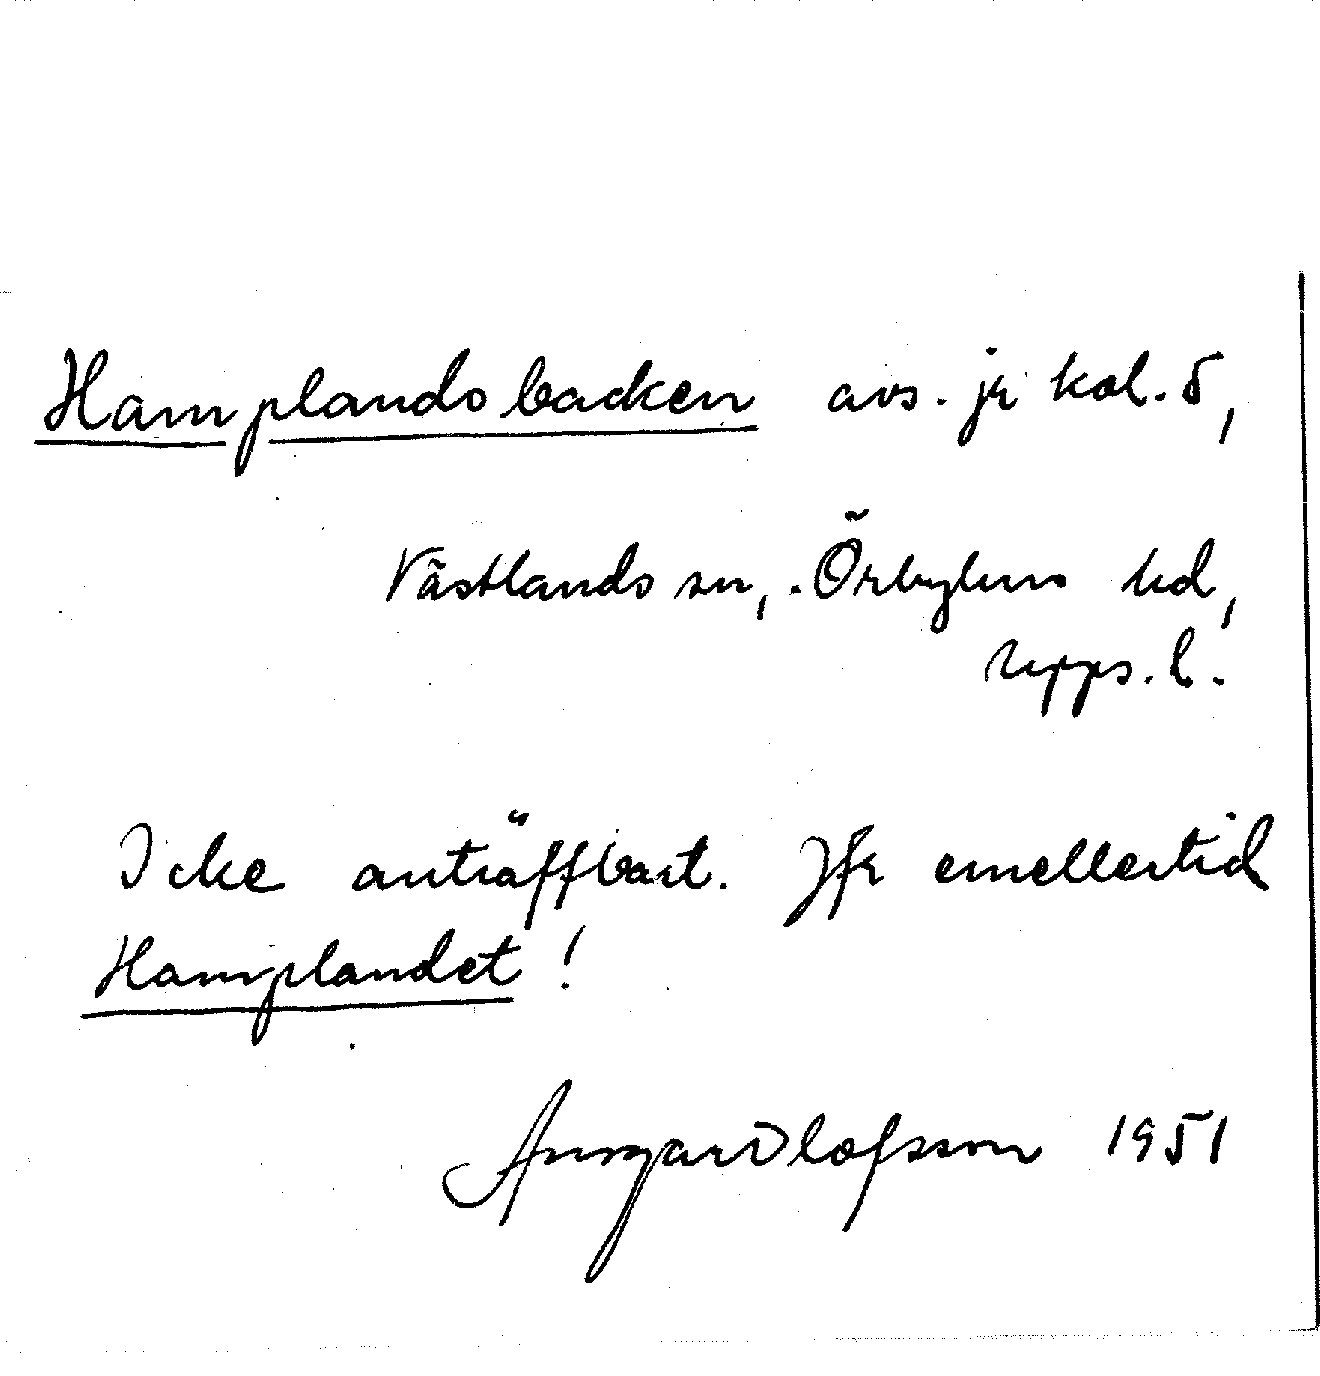 Hamplandsbacken avs. jr kol. 5,
Västlands sn, Örbyhus hd,
Upps. l.
Icke anträffbart. Jfr emellertid
Hamplandet!
Ansgar Olofsson 1951